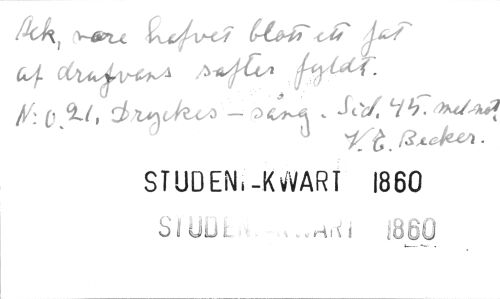 Ack, vore hafvet blott ett fat
af drufvans safter fyldt.
N:o 21, Dryckes-sång. Sid. 45. med not.
V. E. Becker.
STUDENT-KWART 1860
STUDENT-KWART 1860